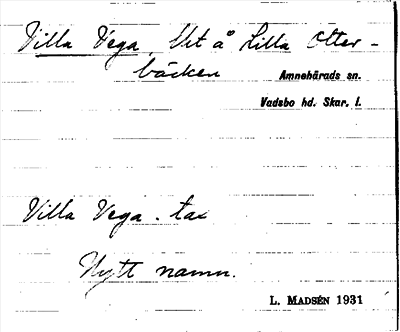 Villa Vega, Ut å Lilla Otter-
bäcken
Amnehärads sn.
Vadsbo hd. Skar. l.
Villa Vega. tax
Nytt namn.
L. MADSÉN 1931